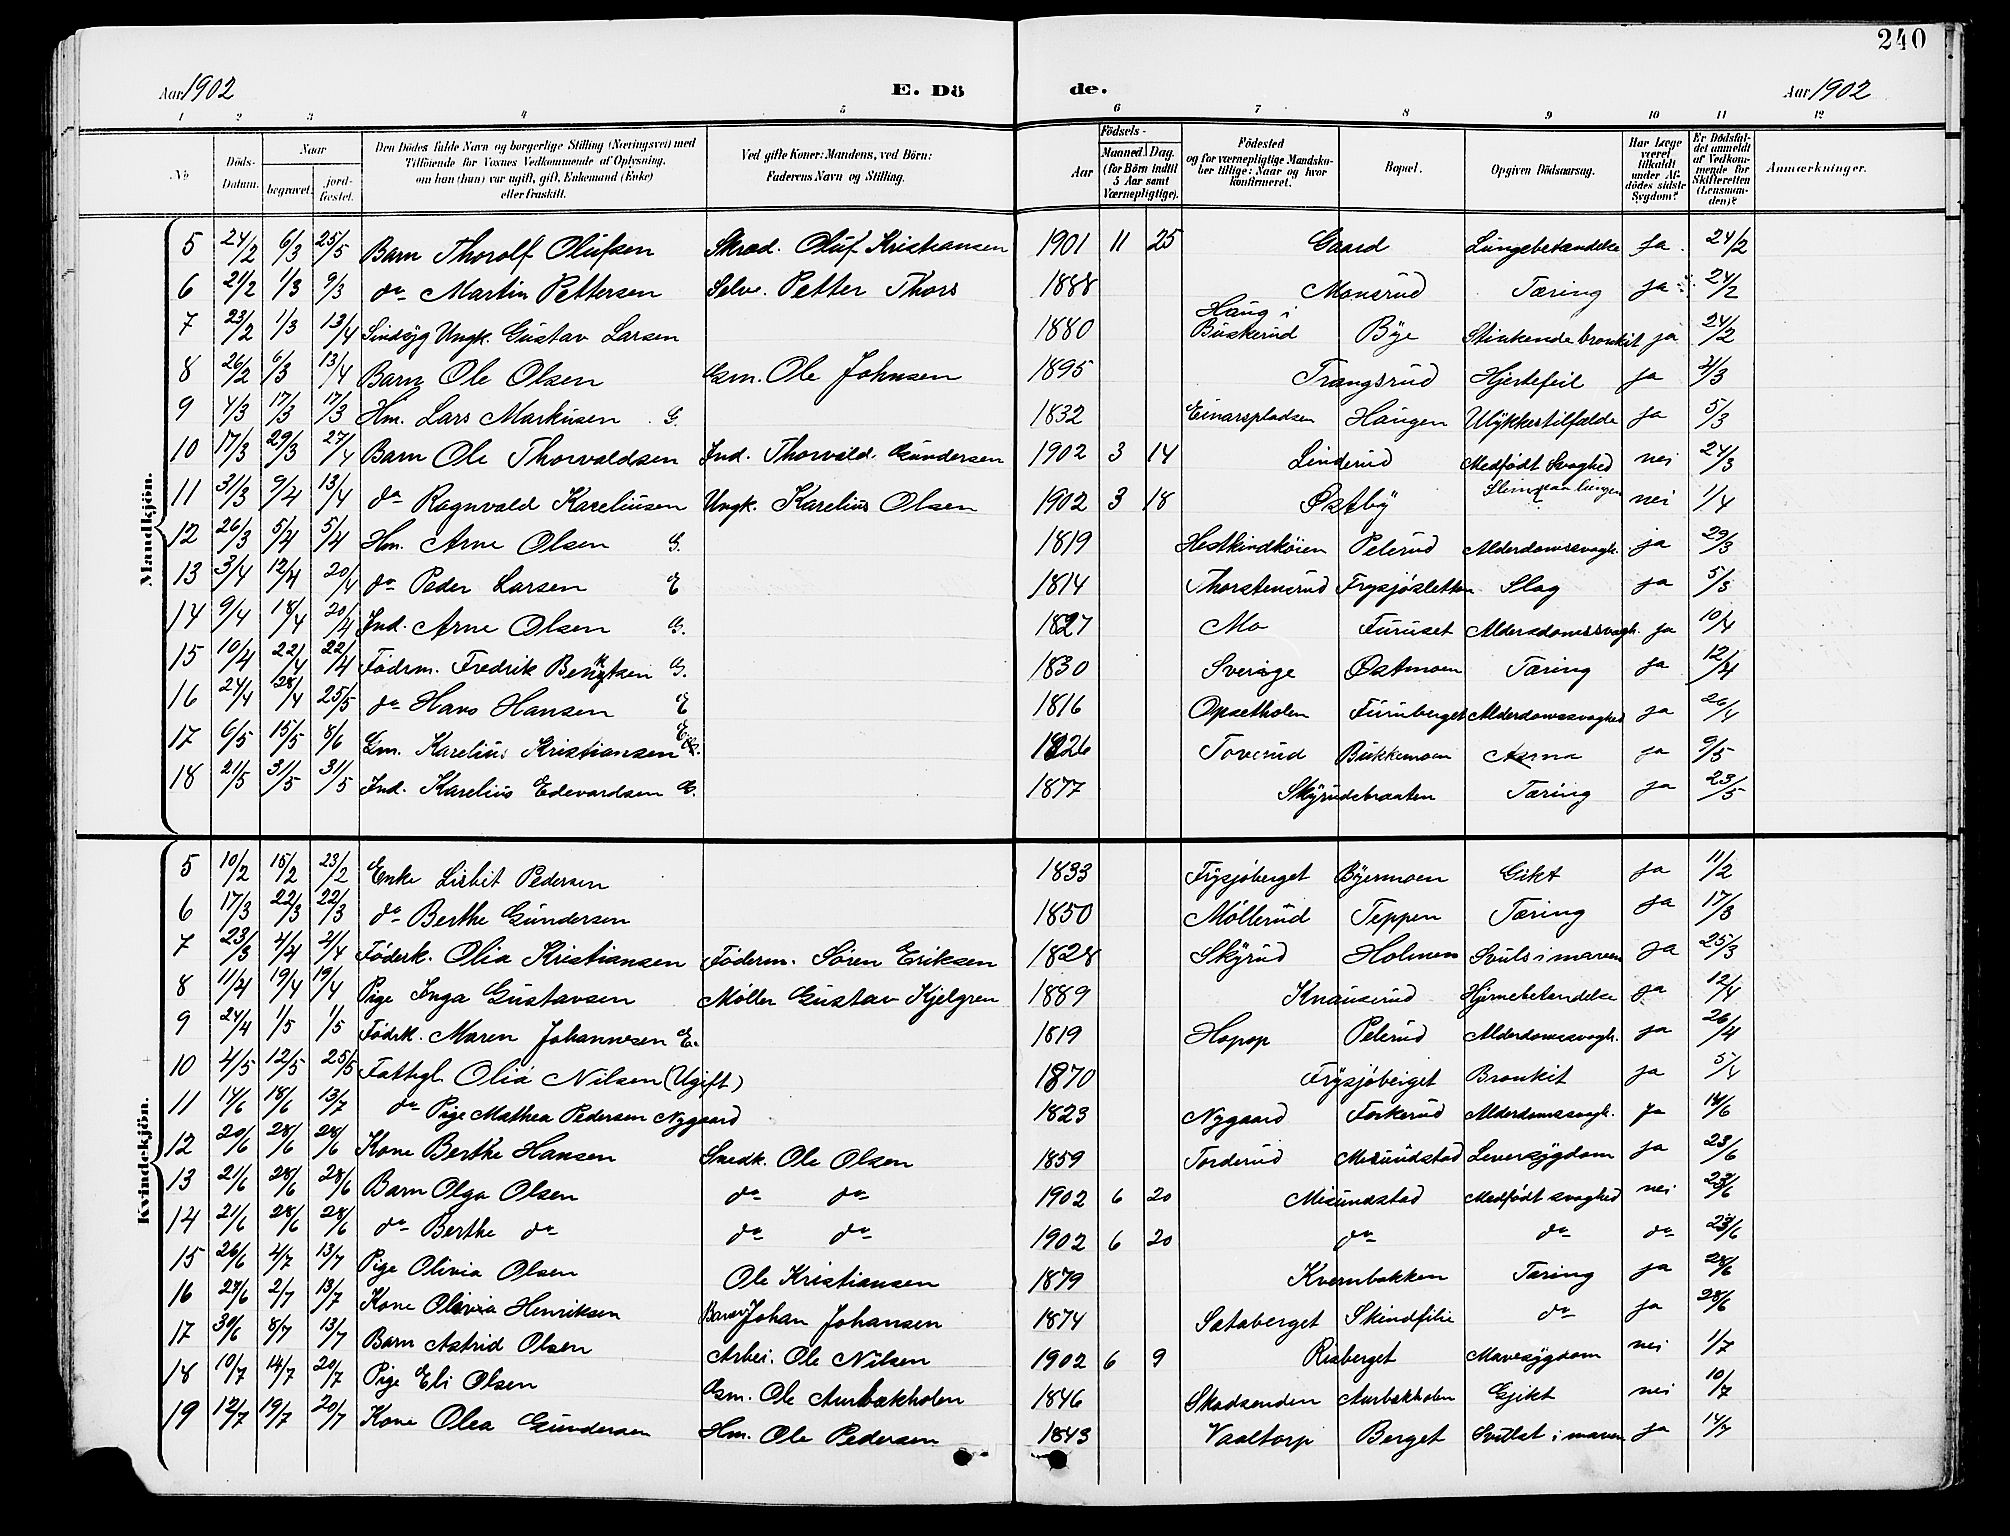 240
Aar 1902 E. Dö de. Aar 1902
1 2 3 4 5 6 7 8 9 10 11 12
No Döds-Datum. Naar begravet. jord-fæstet. Den Dödes fulde Navn og borgerlige Stilling (Næringsvei) med Tilföiende for Voxnes Vedkommende af Oplysning, om han (hun) var ugift, gift, Enkemand (Enke) eller fraskilt. Ved gifte Koner: Mandens, ved Börn: Faderens Navn og Stilling. Födsels- Aar Maaned. Dag. (for Börn indtil 5 Aar samt Værnepligtige). Födested og for værnepligtige Mandskaber tillige: Naar og hvor konfirmeret. Bopæl. Opgiven Dödsaarsag. Har Læge været tilkaldt under Afdödes sidste Sygdom? Er Dödsfaldet anmeldt af Vedkommende for Skifteretten (Lensmanden)? Anmærkninger.
Mandkjön.
5 24/2 6/3 25/5 Barn Thorolf Olufsen Skræd. Oluf Kristiansen 1901 11 25 Gaard Lungebetændelse Ja. 24/2
6 21/2 1/3 9/3 do Martin Pettersen Selve. Petter Thors 1888 Monsrud Tæring ja 24/2
7 23/2 1/3 13/4 Sindsyg Ungk. Gustav Larsen 1880 Haug i Buskerud Bye Stinkende bronkit ja 24/2
8 26/2 6/3 13/4 Barn Ole Olsen Gsm. Ole Johnsen 1895 Trangsrud Hjertefeil ja 2/3
9 4/3 17/3 17/3 Hm. Lars Markusen G. 1832 Einarspladsen Haugen Ulykkestilfælde ja 5/3
10 17/3 29/3 27/4 Barn Ole Thorvaldsen Ind. Thorvald Gundersen 1902 3 14 Linderud Medfödt Svaghed nei 24/3
11 31/3 9/4 13/4 do Ragnvald Kareliusen Ungk. Karelius Olsen 1902 3 18 Østby Slim paa lungen nei 1/4
12 26/3 5/4 5/4 Hm. Arne Olsen G. 1819 Hestkindköien Pelerud Alderdomssvagh. ja 29/3
13 3/4 12/4 20/4 do Peder Larsen E 1814 Thorstensrud Frysjösletten Slag ja 5/3
14 9/4 18/4 20/4 Ind. Arne Olsen G. 1827 Mo Furuset Aldersdomssvagh. ja 10/4
15 10/4 22/4 22/4 Födrm. Fredrik Bengtsen G. 1830 Sverige Østmoen Tæring ja 12/4
16 24/4 28/4 25/5 do Hans Hansen E 1816 Opsetholen Furuberget Alderdomssvaghed ja 26/4
17 6/5 15/5 8/6 Gm. Karelius Kristiansen E 1826 Toverud Bukkemoen Asma ja 9/5
18 21/5 31/5 31/5 Ind. Karelius Edevardsen G. 1877 Skyrudsbraaten Tæring ja 23/5
Kvindekjön.
5 10/2 15/2 23/2 Enke Lisbit Pedersen 1833 Frysjöberget Byermoen Gikt ja 11/2
6 17/3 22/3 22/3 do Berthe Gundersen 1850 Möllerud Teppen Tæring ja 17/3
7 23/3 4/4 4/4 Föderk. Olia Kristiansen Föderm. Sören Eriksen 1828 Skyrud Holmen Svuls i maven ja 25/3
8 11/4 19/4 19/4 Pige Inga Gustavsen Möller Gustav Kjelgren 1889 Knauserud Hjernebetændelse ja 12/4
9 24/4 1/5 1/5 Födrk. Maren Johannesen E. 1819 Hopop Pelerud Alderdomssvagh. ja 26/4
10 4/5 12/5 25/5 Fattigl. Olia Nilsen (Ugift) 1870 Frysjöberget Bronkit ja 5/4
11 14/6 18/6 13/7 do Pige Mathea Pedersen Nygaard 1823 Nygaard Forkerud Alderdomssvagh. ja 14/6
12 20/6 28/6 28/6 Kone Berthe Hansen Snedk. Ole Olsen 1859 Torderud Misundstad Leversygdom ja 23/6
13 21/6 28/6 28/6 Barn Olga Olsen do do 1902 6 20 Misundstad Medfödt svaghed nei 23/6
14 21/6 28/6 28/6 do Berthe do do do 1902 6 20 do do do 23/6
15 26/6 4/7 13/7 Pige Olivia Olsen Ole Kristiansen 1879 Kvernbakken Tæring ja 28/6
16 27/6 2/7 13/7 Kone Olivia Henriksen Johan Johansen 1874 Sætaberget Skindfilie do ja 28/6
17 30/6 8/7 13/7 Barn Astrid Olsen Arbei. Ole Nilsen 1902 6 9 Risberget Mavesygdom nei 1/7
18 10/7 14/7 20/7 Pige Eli Olsen Gsm. Ole Aurbakholen 1846 Skodsenden Aurbakholen Gjikt nei 10/7
19 12/7 19/7 20/7 Kone Olea Gundersen Hm. Ole Pedersen 1843 Vaaltorp Berget Svullst i maven ja 14/7